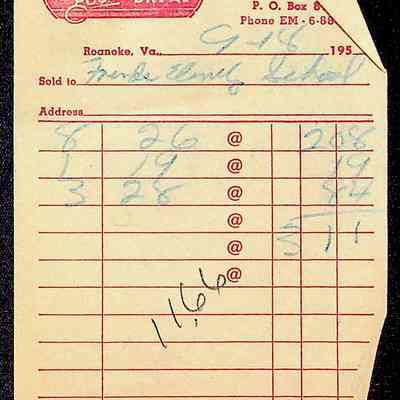 BREAD
P. O. Box 8
Phone EM - 6-88
Roanoke, Va., 9-18 195
Sold to Friends Elmtg School
Address
8 26 @ 208
1 19 @ 19
3 28 @ 84
@ 311
@
@
11.66